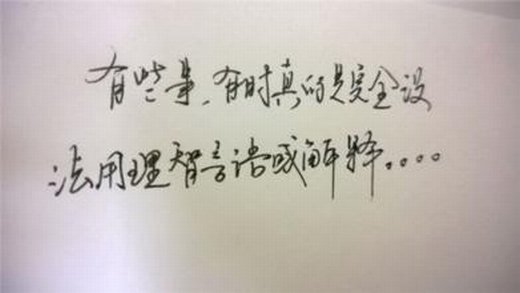 有些事，有时真的是完全没
法用理智言语或解释....